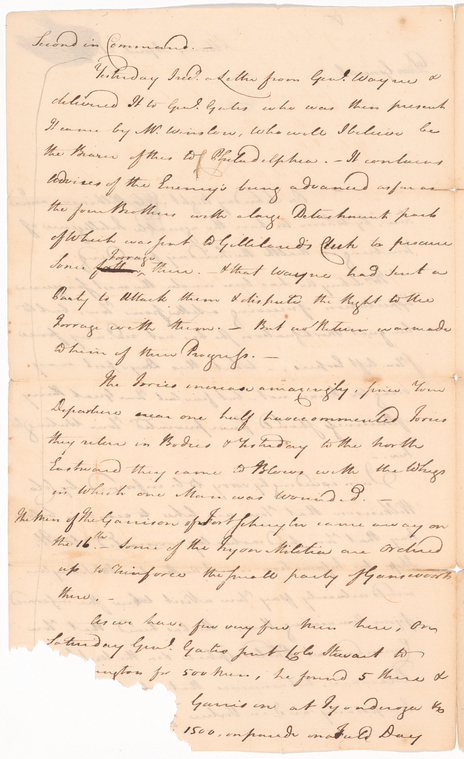 Second in Command. —
Yesterday Irec.d a Letter from Gen.l Wayne &
delivered It to Gen.l Gates who was then present
It came by Mr. Winslow, who will I believe be
the Bearer of this to Philadelphia. — It contains
Advises of the Enemy's being advanced as far as
the four Brothers with a large Detachment part
of Which was sent to Gilleland's Creek to procure
Some Forrage there. & that Wayne had sent a
Party to Attack them & dispute the Right to the
Forrage with them. — But no Return was made
to him of their Progress. —
The Tories increase amazingly, since Your
Departure near one half have commenced Tories
they relive in Bodies & Yesterday to the North
Eastward they came to Blows with the Whigs
in Which one Man was Wounded. —
The Men of The Garrison of Fort Schuyler came away on
the 16th — Some of the Tryon Militia are Ordered
up to Reinforce the small party of Gansworth
there. —
As we have few very few Men here, On
Saturday Gen.l Gates sent Colo Stewart to
ington for 500 Men, he found 5 there &
Garrison at Tyonderoga to
1500. on parade on a Field Day